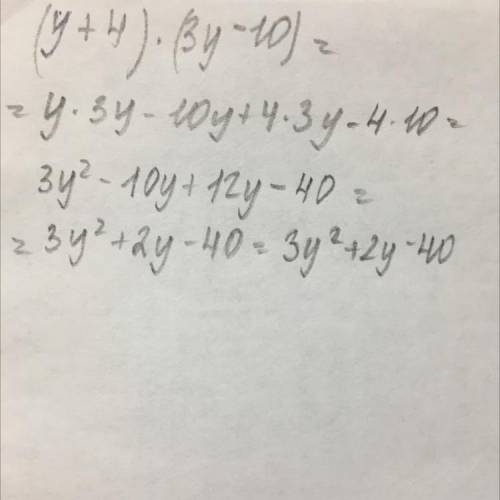 (y + 4) · (3y - 10) =
= y · 3y - 10y + 4 · 3y - 4 · 10 =
3y² - 10y + 12y - 40 =
= 3y² + 2y - 40 = 3y² + 2y - 40